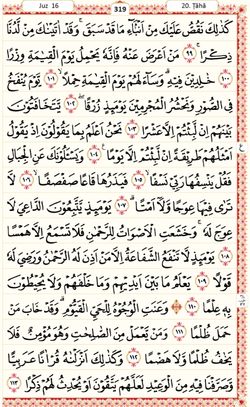 Juz 16
319
20. Ṭāhā
كَذَٰلِكَ نَقُصُّ عَلَيْكَ مِنْ أَنۢبَآءِ مَا قَدْ سَبَقَ ۚ وَقَدْ ءَاتَيْنَٰكَ مِن لَّدُنَّا
ذِكْرًا ٩٩ مَّنْ أَعْرَضَ عَنْهُ فَإِنَّهُۥ يَحْمِلُ يَوْمَ ٱلْقِيَٰمَةِ وِزْرًا
١٠٠ خَٰلِدِينَ فِيهِ ۖ وَسَآءَ لَهُمْ يَوْمَ ٱلْقِيَٰمَةِ حِمْلًا ١٠١ يَوْمَ يُنفَخُ
فِى ٱلصُّورِ ۚ وَنَحْشُرُ ٱلْمُجْرِمِينَ يَوْمَئِذٍ زُرْقًا ١٠٢ يَتَخَٰفَتُونَ
بَيْنَهُمْ إِن لَّبِثْتُمْ إِلَّا عَشْرًا ١٠٣ نَّحْنُ أَعْلَمُ بِمَا يَقُولُونَ إِذْ يَقُولُ
أَمْثَلُهُمْ طَرِيقَةً إِن لَّبِثْتُمْ إِلَّا يَوْمًا ١٠٤ وَيَسْـَٔلُونَكَ عَنِ ٱلْجِبَالِ
فَقُلْ يَنسِفُهَا رَبِّى نَسْفًا ١٠٥ فَيَذَرُهَا قَاعًا صَفْصَفًا ١٠٦ لَّا
تَرَىٰ فِيهَا عِوَجًا وَلَآ أَمْتًا ١٠٧ يَوْمَئِذٍ يَتَّبِعُونَ ٱلدَّاعِىَ لَا
عِوَجَ لَهُۥ ۖ وَخَشَعَتِ ٱلْأَصْوَاتُ لِلرَّحْمَٰنِ فَلَا تَسْمَعُ إِلَّا هَمْسًا
١٠٨ يَوْمَئِذٍ لَّا تَنفَعُ ٱلشَّفَٰعَةُ إِلَّا مَنْ أَذِنَ لَهُ ٱلرَّحْمَٰنُ وَرَضِىَ لَهُۥ
قَوْلًا ١٠٩ يَعْلَمُ مَا بَيْنَ أَيْدِيهِمْ وَمَا خَلْفَهُمْ وَلَا يُحِيطُونَ
بِهِۦ عِلْمًا ١١٠ ۞ وَعَنَتِ ٱلْوُجُوهُ لِلْحَىِّ ٱلْقَيُّومِ ۖ وَقَدْ خَابَ مَنْ
حَمَلَ ظُلْمًا ١١١ وَمَن يَعْمَلْ مِنَ ٱلصَّٰلِحَٰتِ وَهُوَ مُؤْمِنٌ فَلَا
يَخَافُ ظُلْمًا وَلَا هَضْمًا ١١٢ وَكَذَٰلِكَ أَنزَلْنَٰهُ قُرْءَانًا عَرَبِيًّا
وَصَرَّفْنَا فِيهِ مِنَ ٱلْوَعِيدِ لَعَلَّهُمْ يَتَّقُونَ أَوْ يُحْدِثُ لَهُمْ ذِكْرًا ١١٣